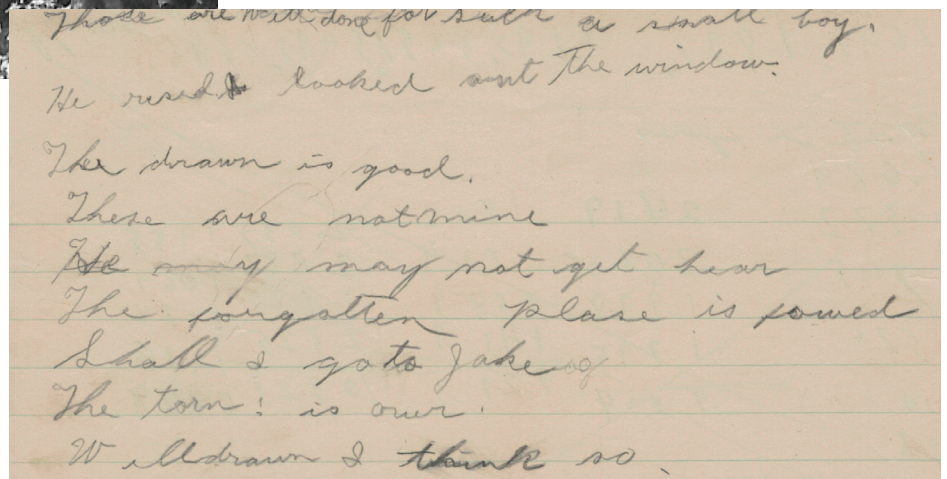 Those are well done for such a small boy.
He rused & looked out The window.
Ther drawn is good.
These are not mine
He may may not get hear
The forgotten plase is fowed
Shall I go to Jake
The torn: is over.
Will drawn I think so.